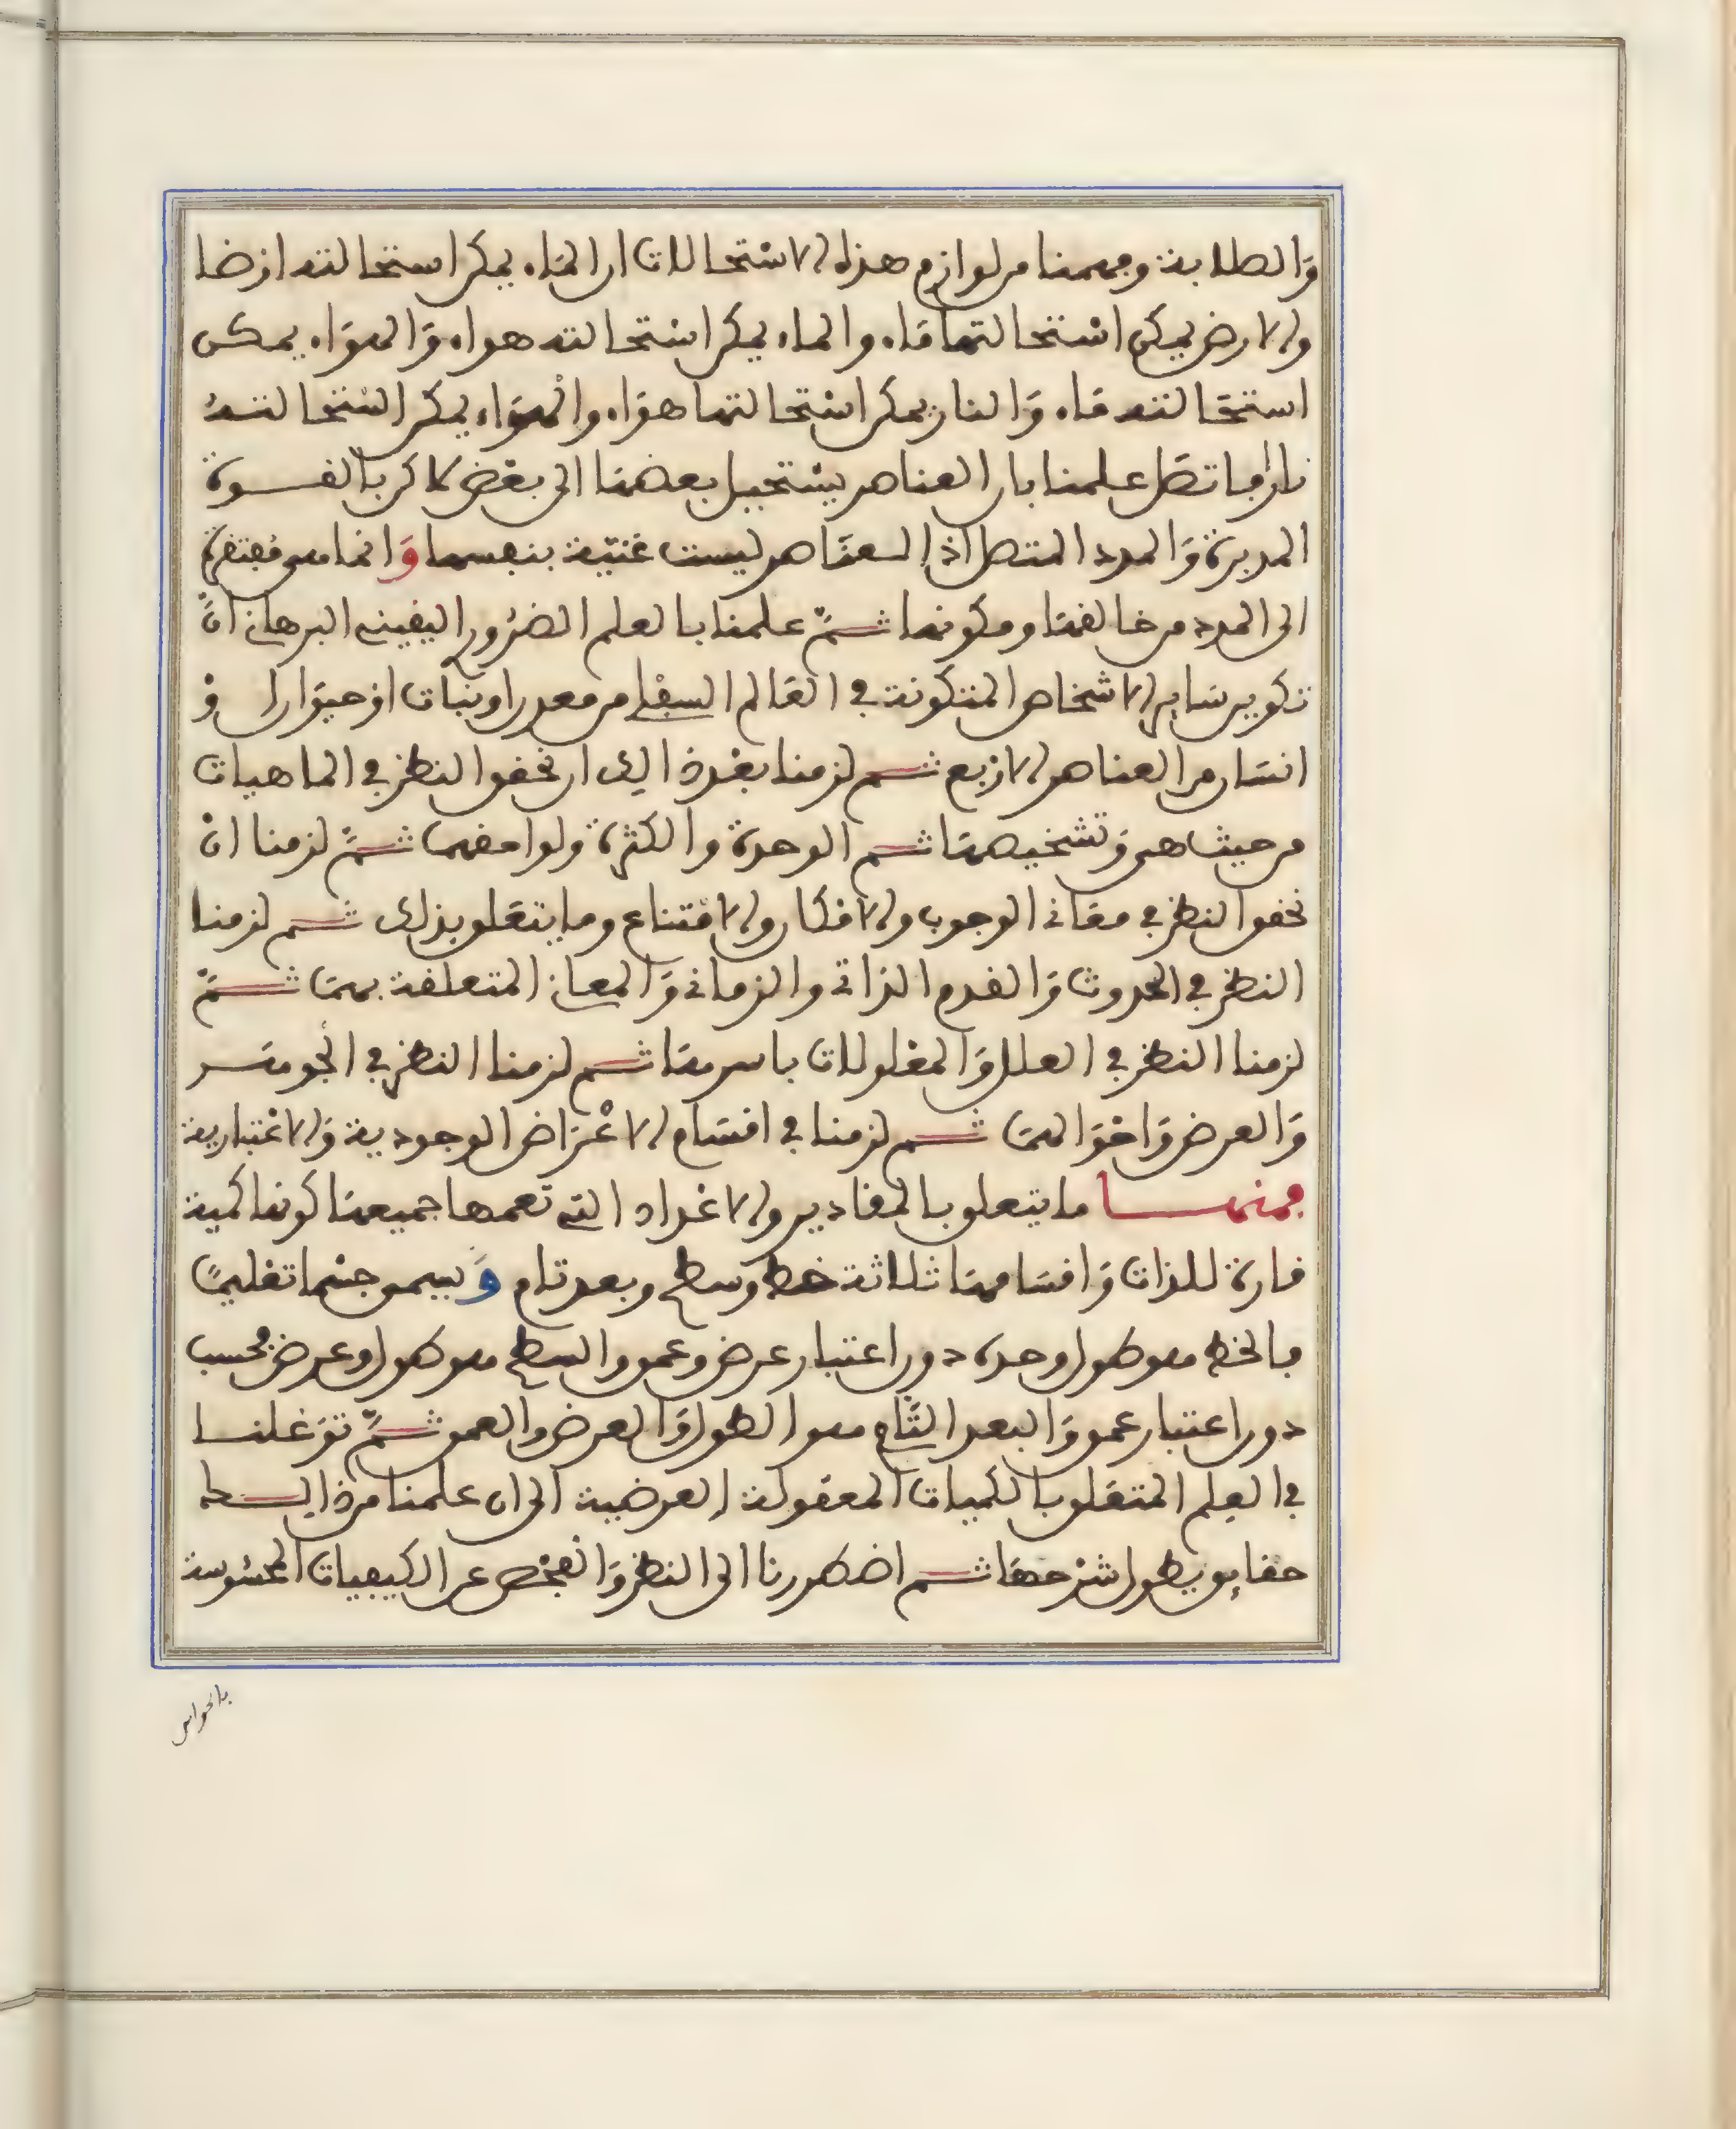 والصلابة وفهمنا من لوازم هذه الاستحالات ان الماء يمكن استحالته ارضا
والارض يمكن استحالتها ماء والماء يمكن استحالته هواء والهواء يمكن
استحالته ماء والنار يمكن استحالتها هواء والهواء يمكن استحالته
نارا فاتصل علمنا بان العناصر يستحيل بعضها الى بعض لاكن بالقوة
المدبرة والمدد المتصل اذ العناصر ليست غنية بنفسها وانما هي مفتقرة
الى المدد من خالقها ومكونها ثم علمنا بالعلم الضروري اليقيني البرهاني ان
تكوين ساير الاشخاص المتكونة في العالم السفلي من معدن او نبات او حيوان او
انسان من العناصر الاربع ثم لزمنا بعد ذالك ان نحقق النظر في الماهيات
من حيث هي وتشخيصها ثم الوحدة والكثرة ولواحقهما ثم لزمنا ان
نحقق النظر في معاني الوجوب والامكان والامتناع وما يتعلق بذلك ثم لزمنا
النظر في الحدوث والقدم الذاتي والزماني والمعاني المتعلقة بهما ثم
لزمنا النظر في العلل والمعلولات باسرها ثم لزمنا النظر في الجوهر
والعرض واحوالهما ثم لزمنا في اقسام الاعراض الوجودية والاعتبارية
فمنها ما يتعلق بالمقادير والاعداد التي تعمها جميعها كونها كمية
قارة للذات واقسامها ثلاثة خط وسطح وبعد تام ويسمى جسما تعليميا
فالخط هو طول وحده دون اعتبار عرض وعمق والسطح هو طول وعرض فحسب
دون اعتبار عمق والبعد التام هو الطول والعرض والعمق ثم توغلنا
في العلم المتعلق بالكميات المعقولة العرضية الى ان علمنا من ذالك
حقايق يطول شرحها ثم اضطررنا الى النظر والفحص عن الكيفيات المحسوسة
بالحواس